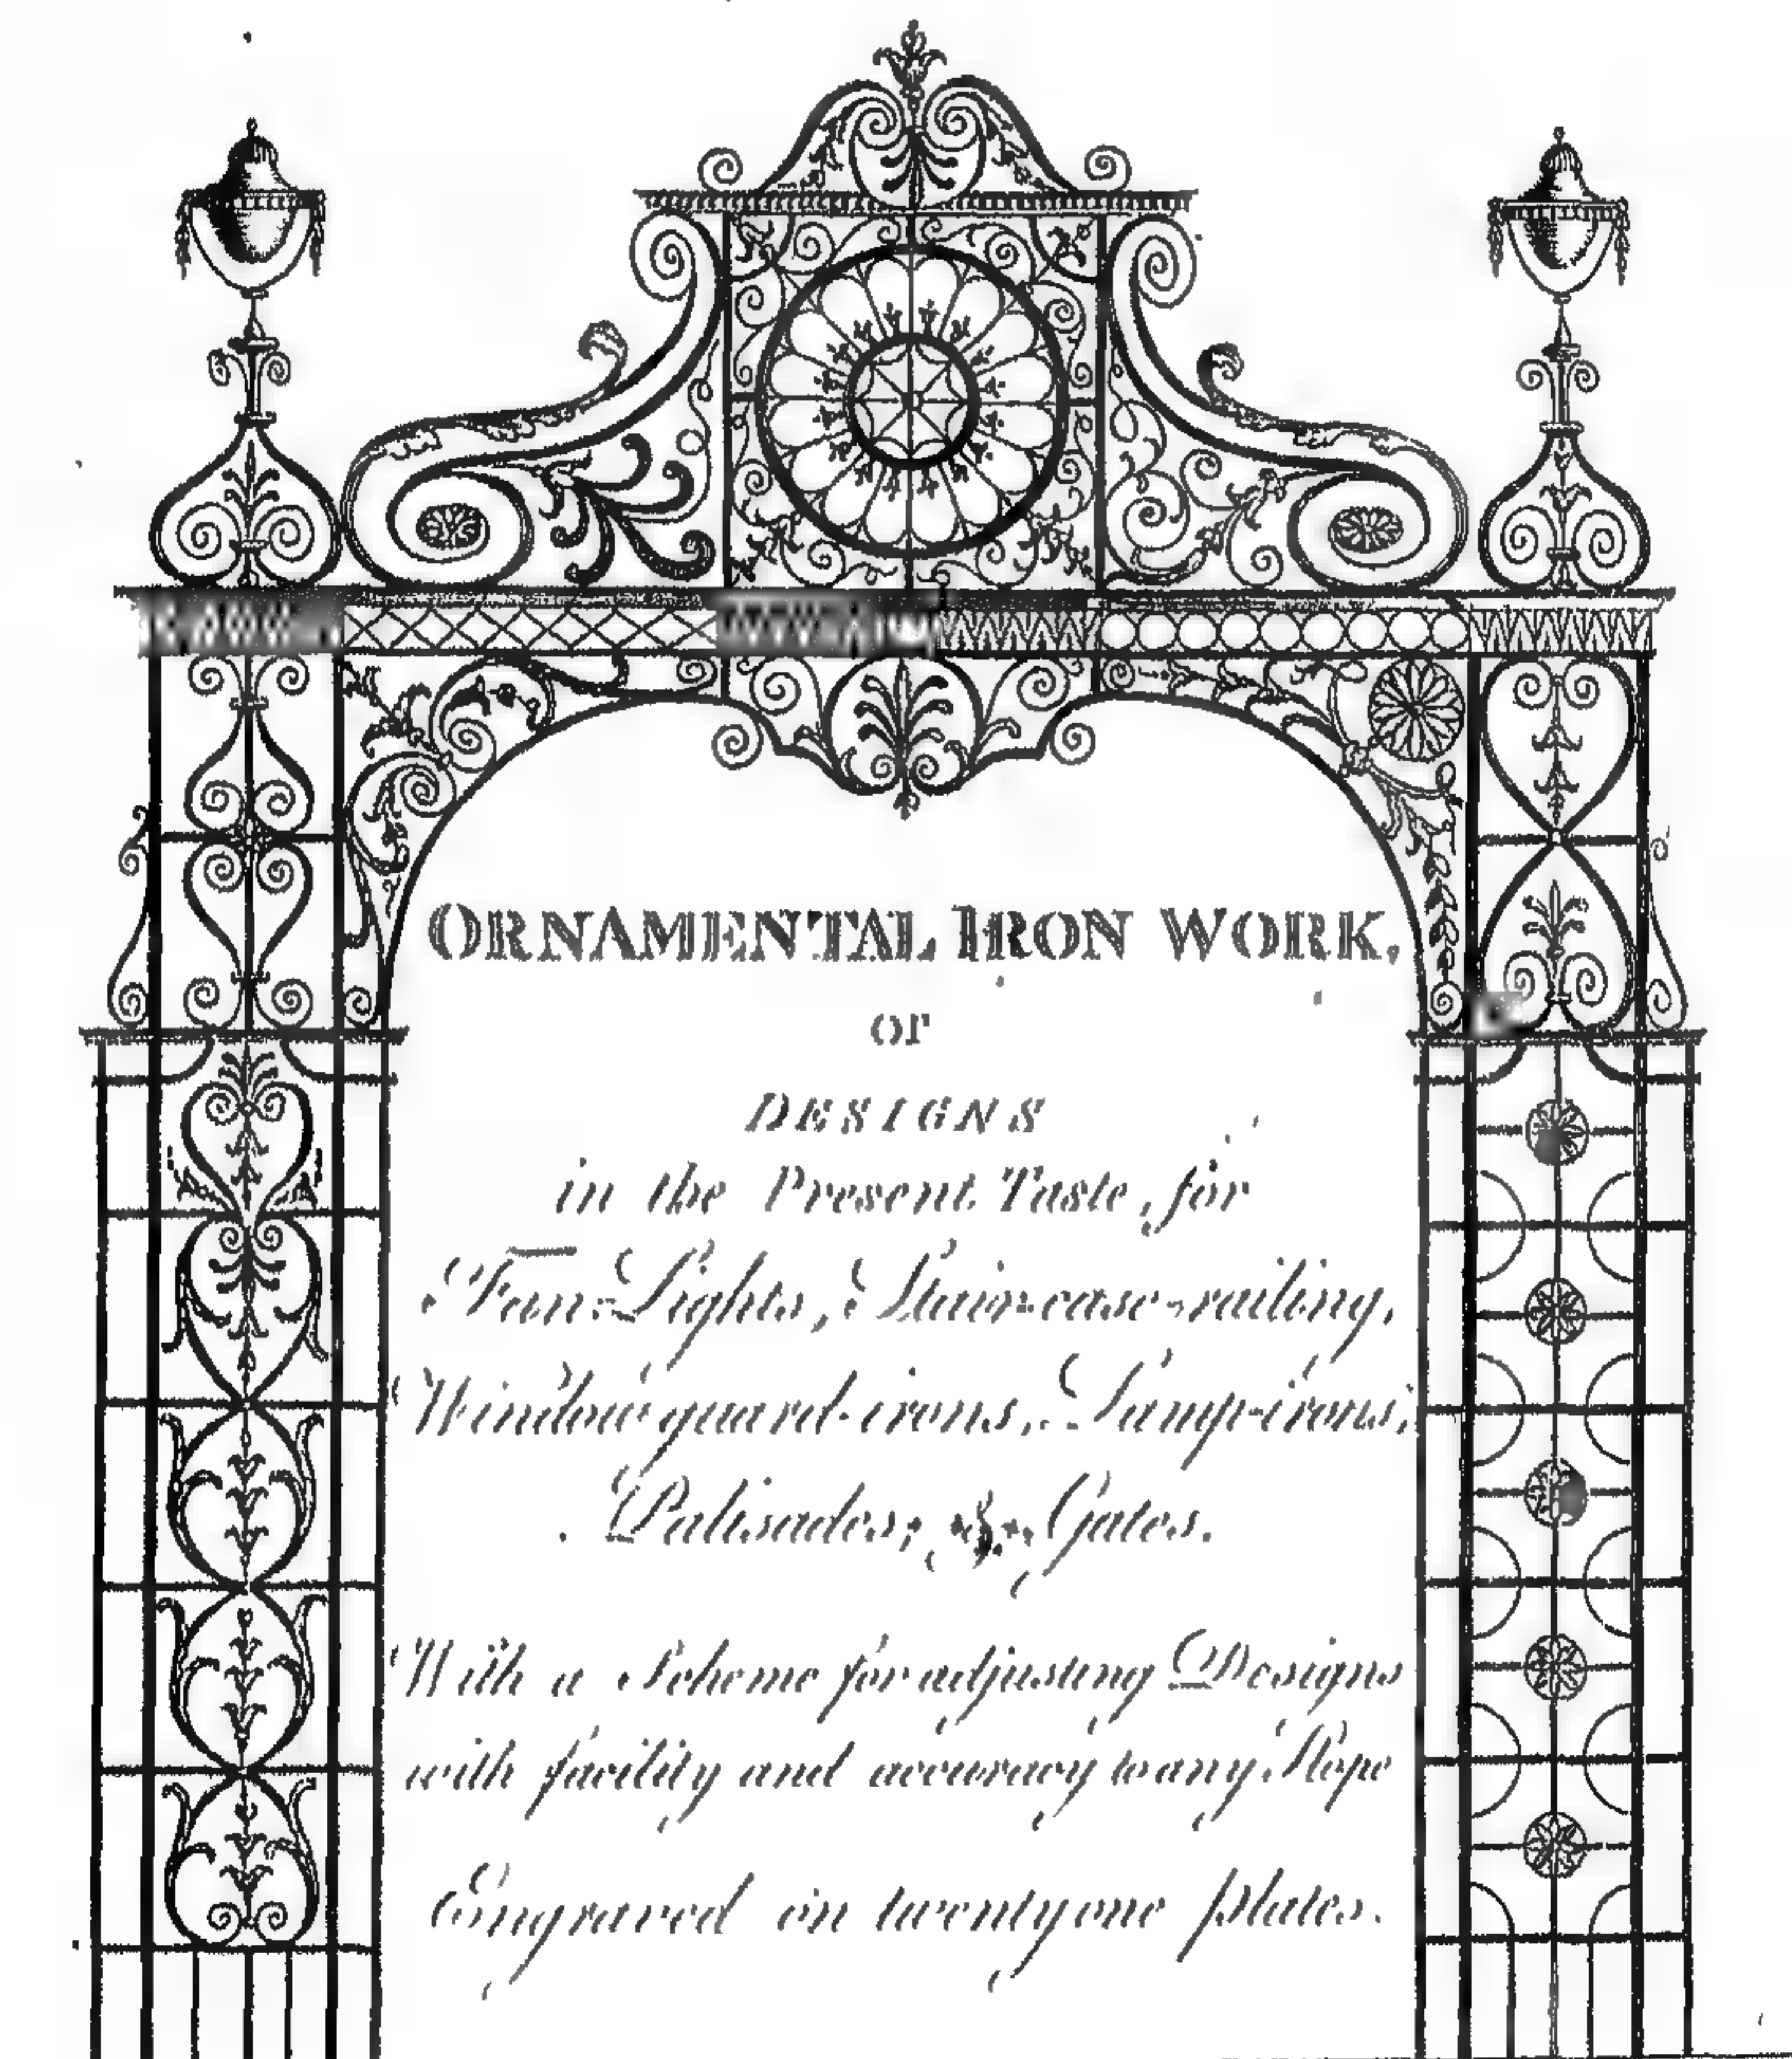 ORNAMENTAL IRON WORK,
or
DESIGNS
in the Present Taste, for
Fan-Lights, Stair-case-railing,
Window guard-irons, Lamp-irons,
Palisades, & Gates.
With a Scheme for adjusting Designs
with facility and accuracy to any Slope
Engraved on twenty one plates.